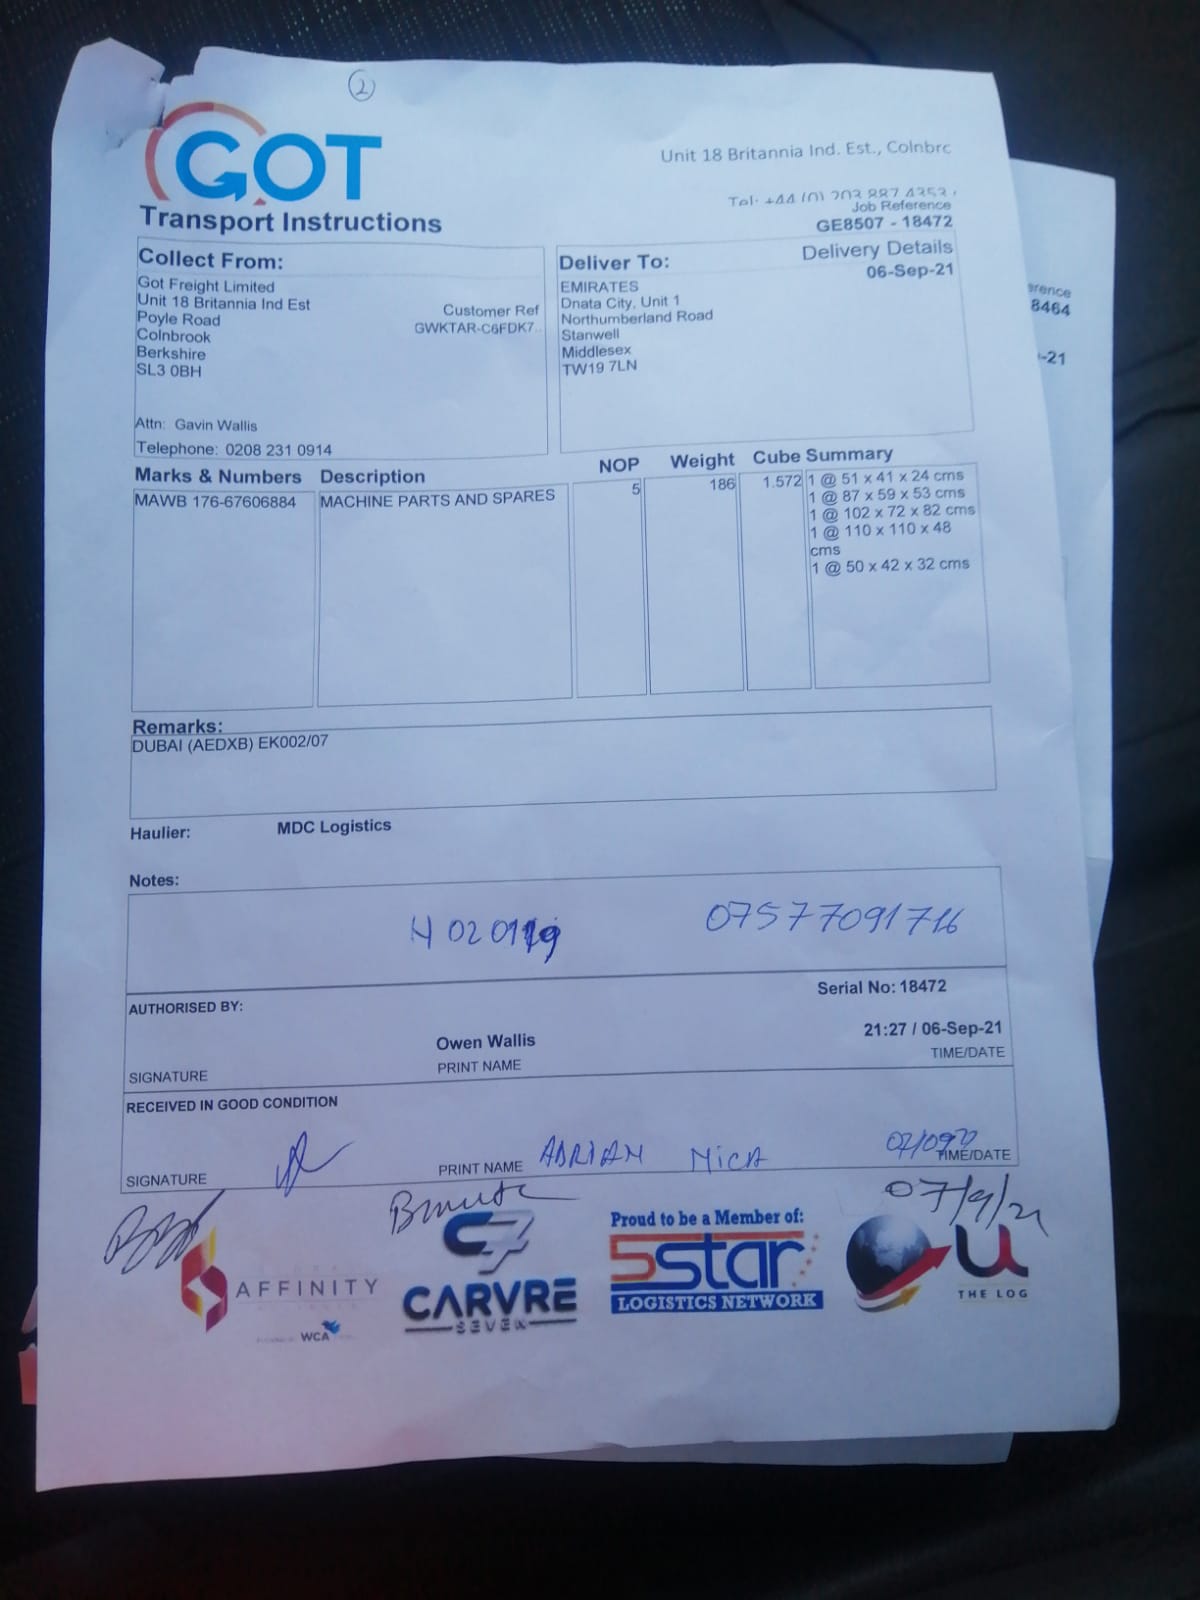 2
GOT
Unit 18 Britannia Ind. Est., Colnbrc
Tel: +44 (0) 203 887 4353
Job Reference
Transport Instructions
GE8507 - 18472
Collect From:
Got Freight Limited
Unit 18 Britannia Ind Est
Poyle Road
Colnbrook
Berkshire
SL3 0BH
Customer Ref
GWKTAR-C6FDK7..
Attn: Gavin Wallis
Telephone: 0208 231 0914
Deliver To:
Delivery Details
06-Sep-21
EMIRATES
Dnata City, Unit 1
Northumberland Road
Stanwell
Middlesex
TW19 7LN
erence
8464
-21
Marks & Numbers Description NOP Weight Cube Summary
MAWB 176-67606884 MACHINE PARTS AND SPARES 5 186 1.572 1 @ 51 x 41 x 24 cms
1 @ 87 x 59 x 53 cms
1 @ 102 x 72 x 82 cms
1 @ 110 x 110 x 48
cms
1 @ 50 x 42 x 32 cms
Remarks:
DUBAI (AEDXB) EK002/07
Haulier: MDC Logistics
Notes:
07577091716
Serial No: 18472
AUTHORISED BY:
Owen Wallis 21:27 / 06-Sep-21
SIGNATURE PRINT NAME TIME/DATE
RECEIVED IN GOOD CONDITION
SIGNATURE PRINT NAME ADRIAN MICA TIME/DATE
07/9/21
AFFINITY
WCA
CARVRE
SEVEN
Proud to be a Member of:
5star
LOGISTICS NETWORK
U
THE LOG